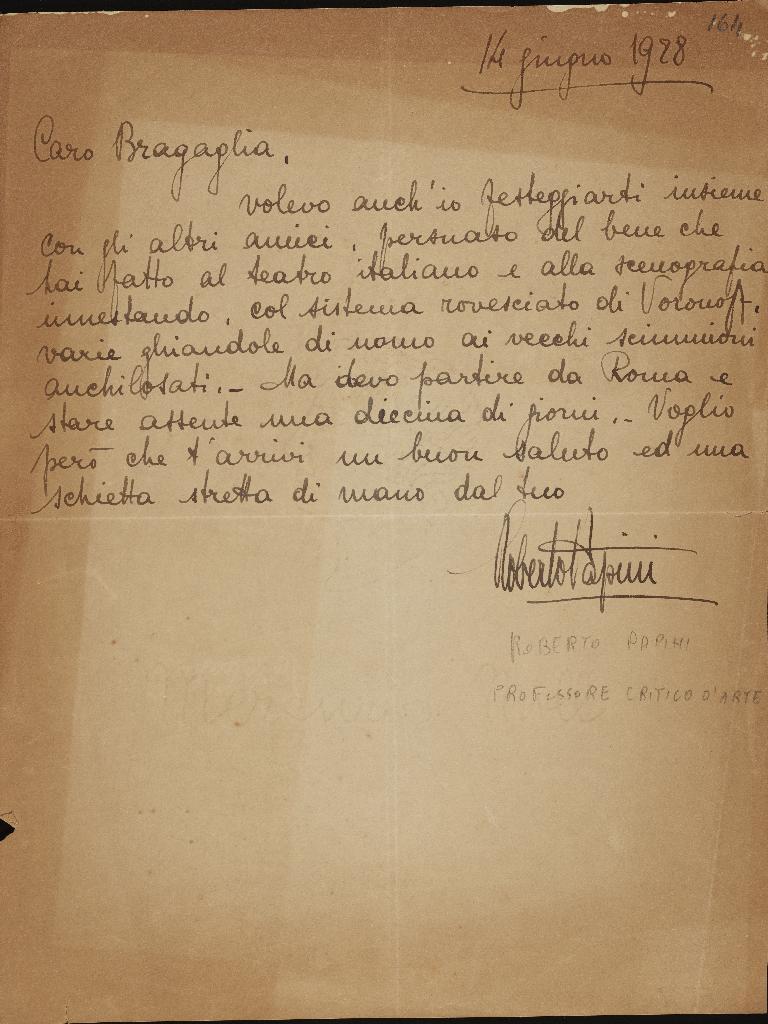 164
14 giugno 1928
Caro Bragaglia,
volevo anch'io festeggiarti insieme
con gli altri amici, persuaso del bene che
hai fatto al teatro italiano e alla scenografia
innestando, col sistema rovesciato di Voronoff,
varie ghiandole di uomo ai vecchi scimmioni
anchilosati. – Ma devo partire da Roma e
stare assente una diecina di giorni. – Voglio
però che t'arrivi un buon saluto ed una
schietta stretta di mano dal tuo
Roberto Papini
ROBERTO PAPINI
PROFESSORE CRITICO D'ARTE